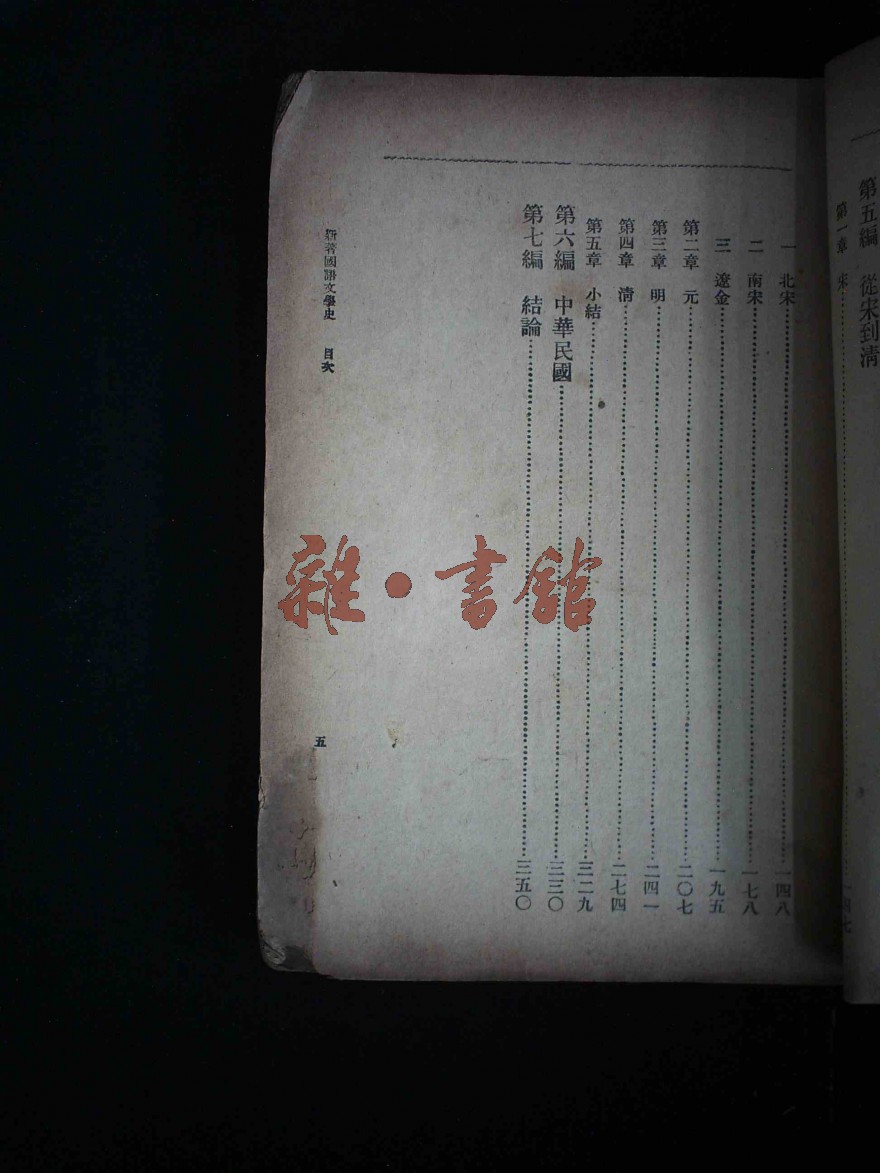 第五編　從宋到清
第一章　宋……一四七
一　北宋……一四八
二　南宋……一七八
三　遼金……一九五
第二章　元……二〇七
第三章　明……二四一
第四章　清……二七四
第五章　小結……三二九
第六編　中華民國……三三〇
第七編　結論……三五〇
新著國語文學史　目次
五
雜·書館